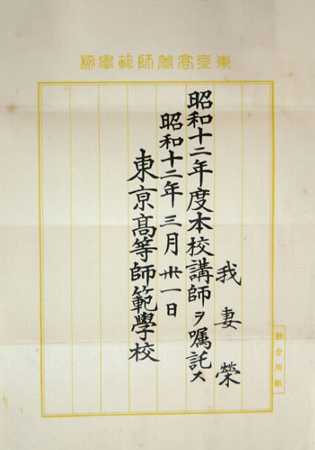 東京高等師範學校
我妻榮
昭和十二年度本校講師ヲ囑託ス
昭和十二年三月卅一日
東京高等師範學校
辭令用紙